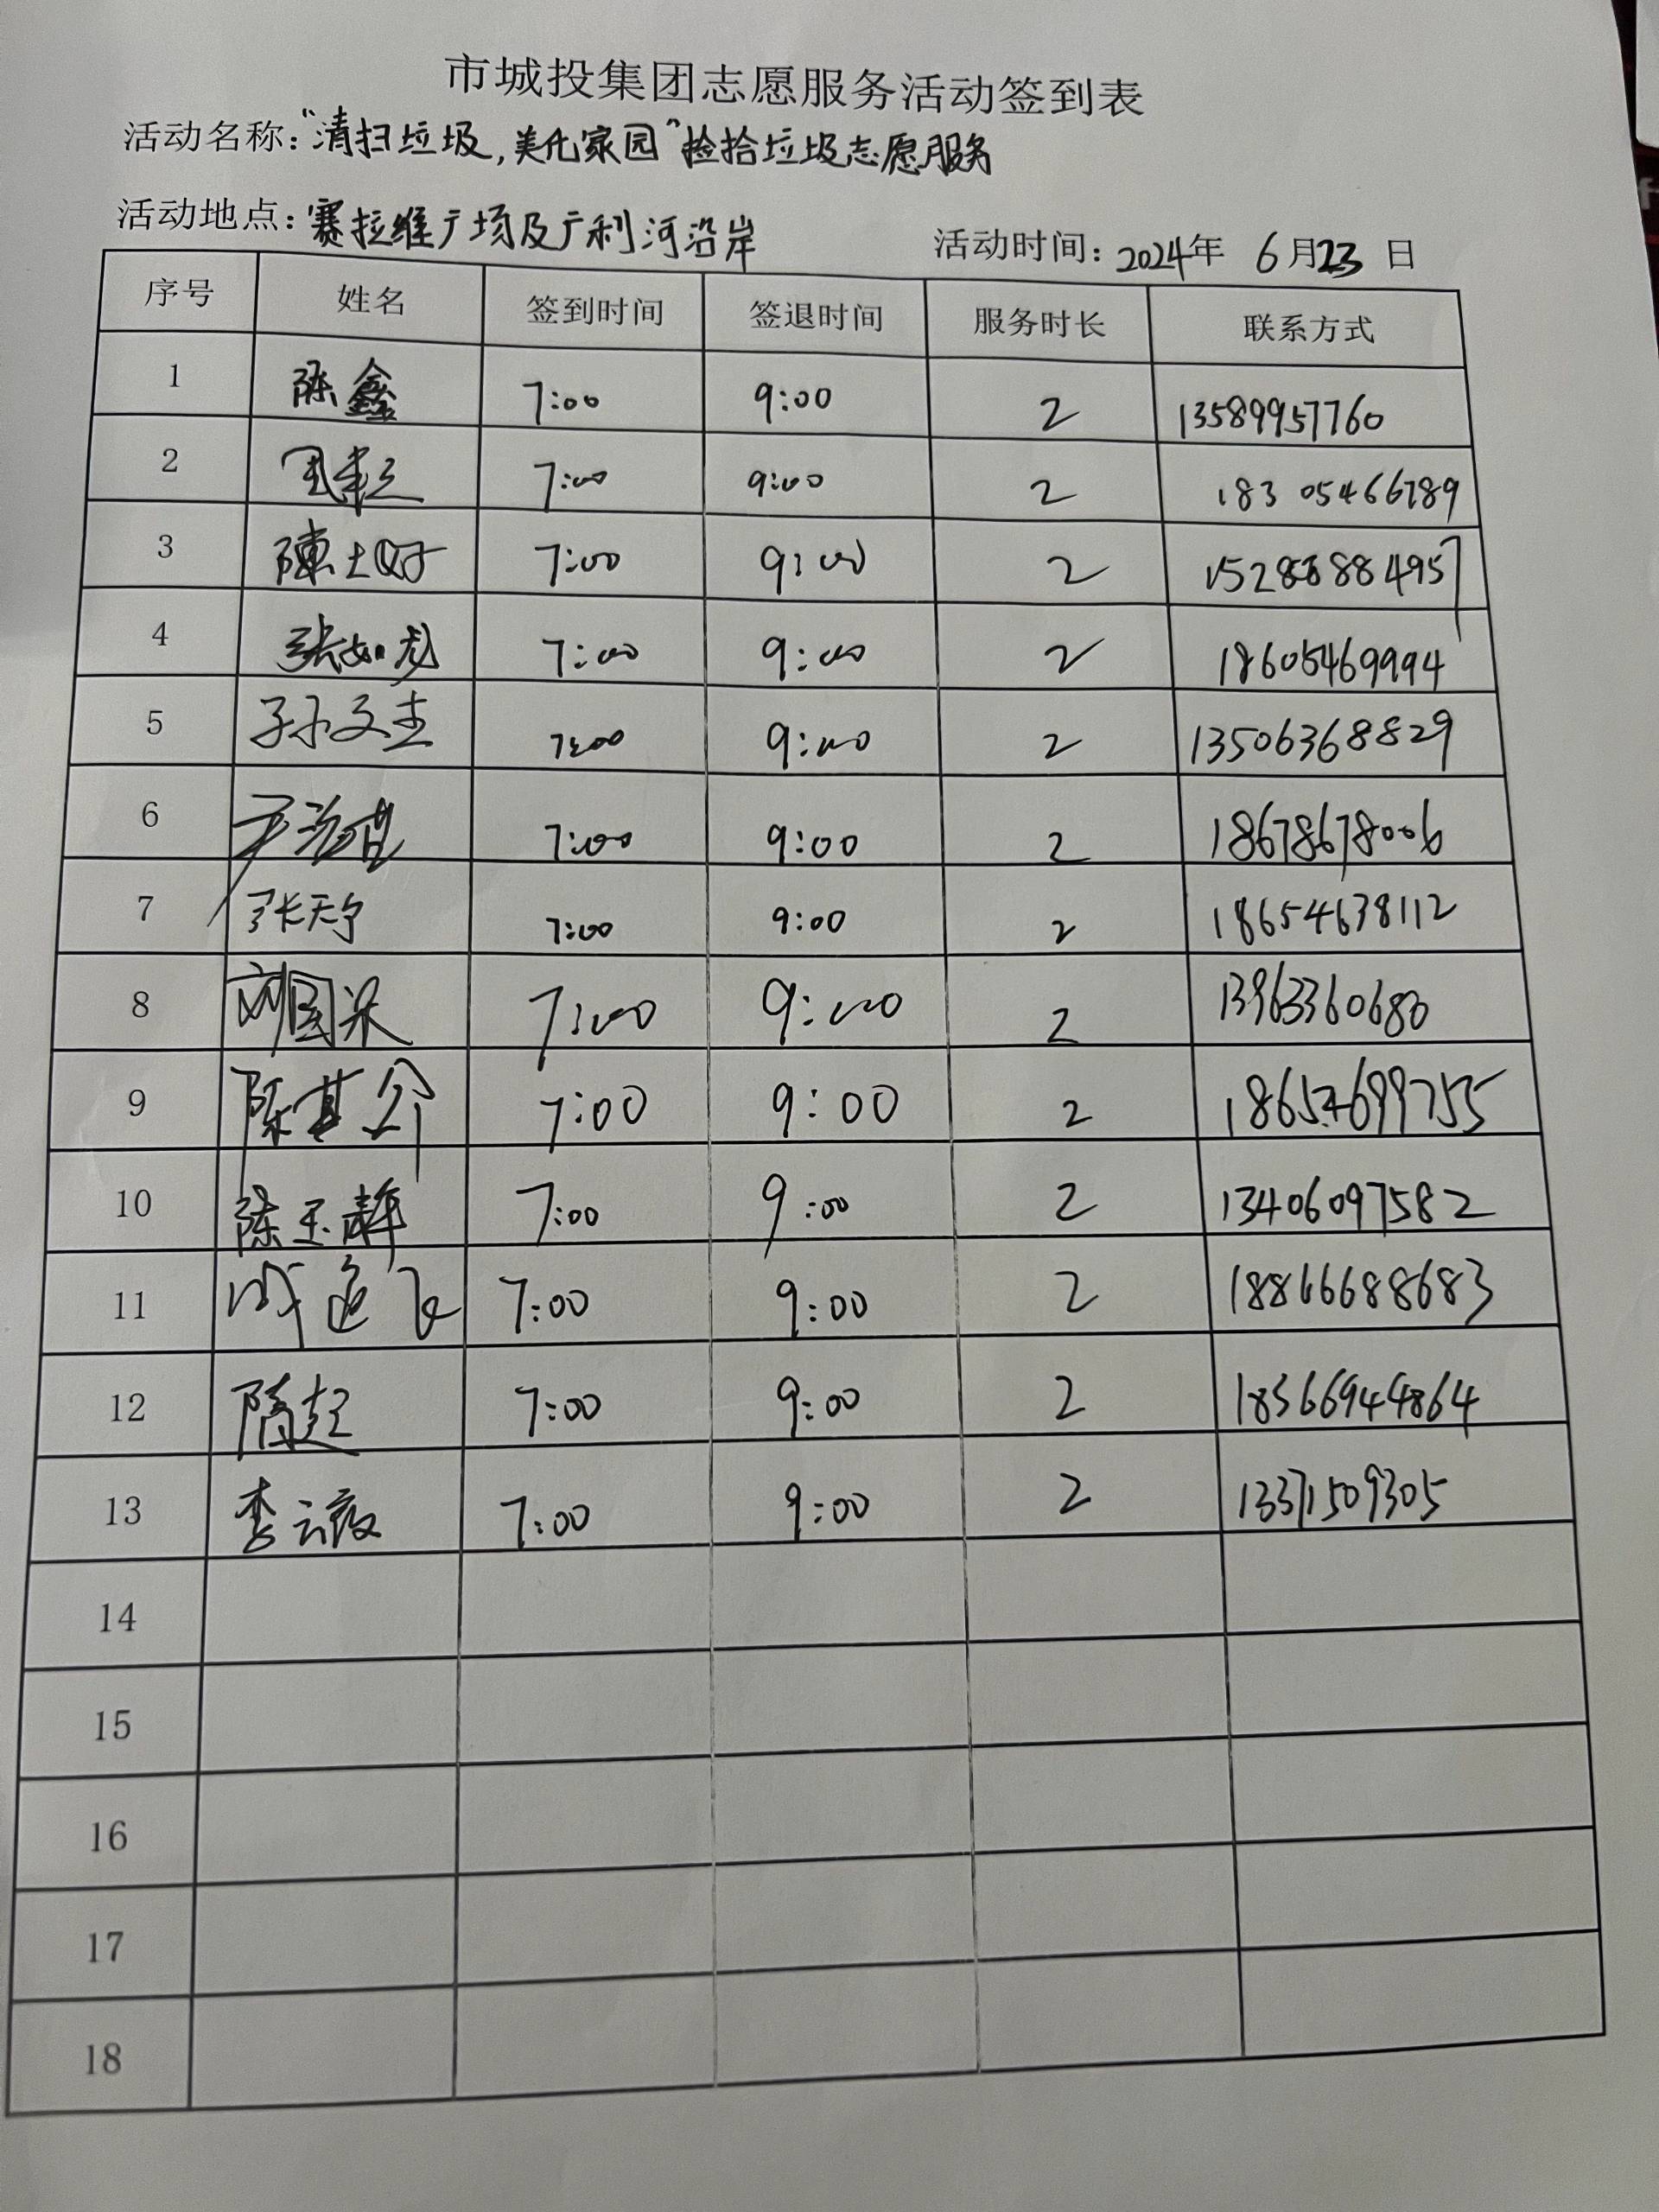 市城投集团志愿服务活动签到表
活动名称：“清扫垃圾，美化家园”捡拾垃圾志愿服务
活动地点：赛拉维广场及广利河沿岸 活动时间：2024年 6月23日
序号 姓名 签到时间 签退时间 服务时长 联系方式
1 陈鑫 7:00 9:00 2 13589957760
2 7:00 9:00 2 18305466789
3 7:00 9:00 2
4 张如龙 7:00 9:00 2 18605469994
5 孙文圭 7:00 9:00 2 13506368829
6 7:00 9:00 2 18678678006
7 张天宁 7:00 9:00 2 18654638112
8 刘国梁 7:00 9:00 2 13963360680
9 7:00 9:00 2
10 陈玉静 7:00 9:00 2 13406097582
11 7:00 9:00 2 18866688683
12 隋超 7:00 9:00 2 18366944864
13 李云霞 7:00 9:00 2 13371509305
14
15
16
17
18